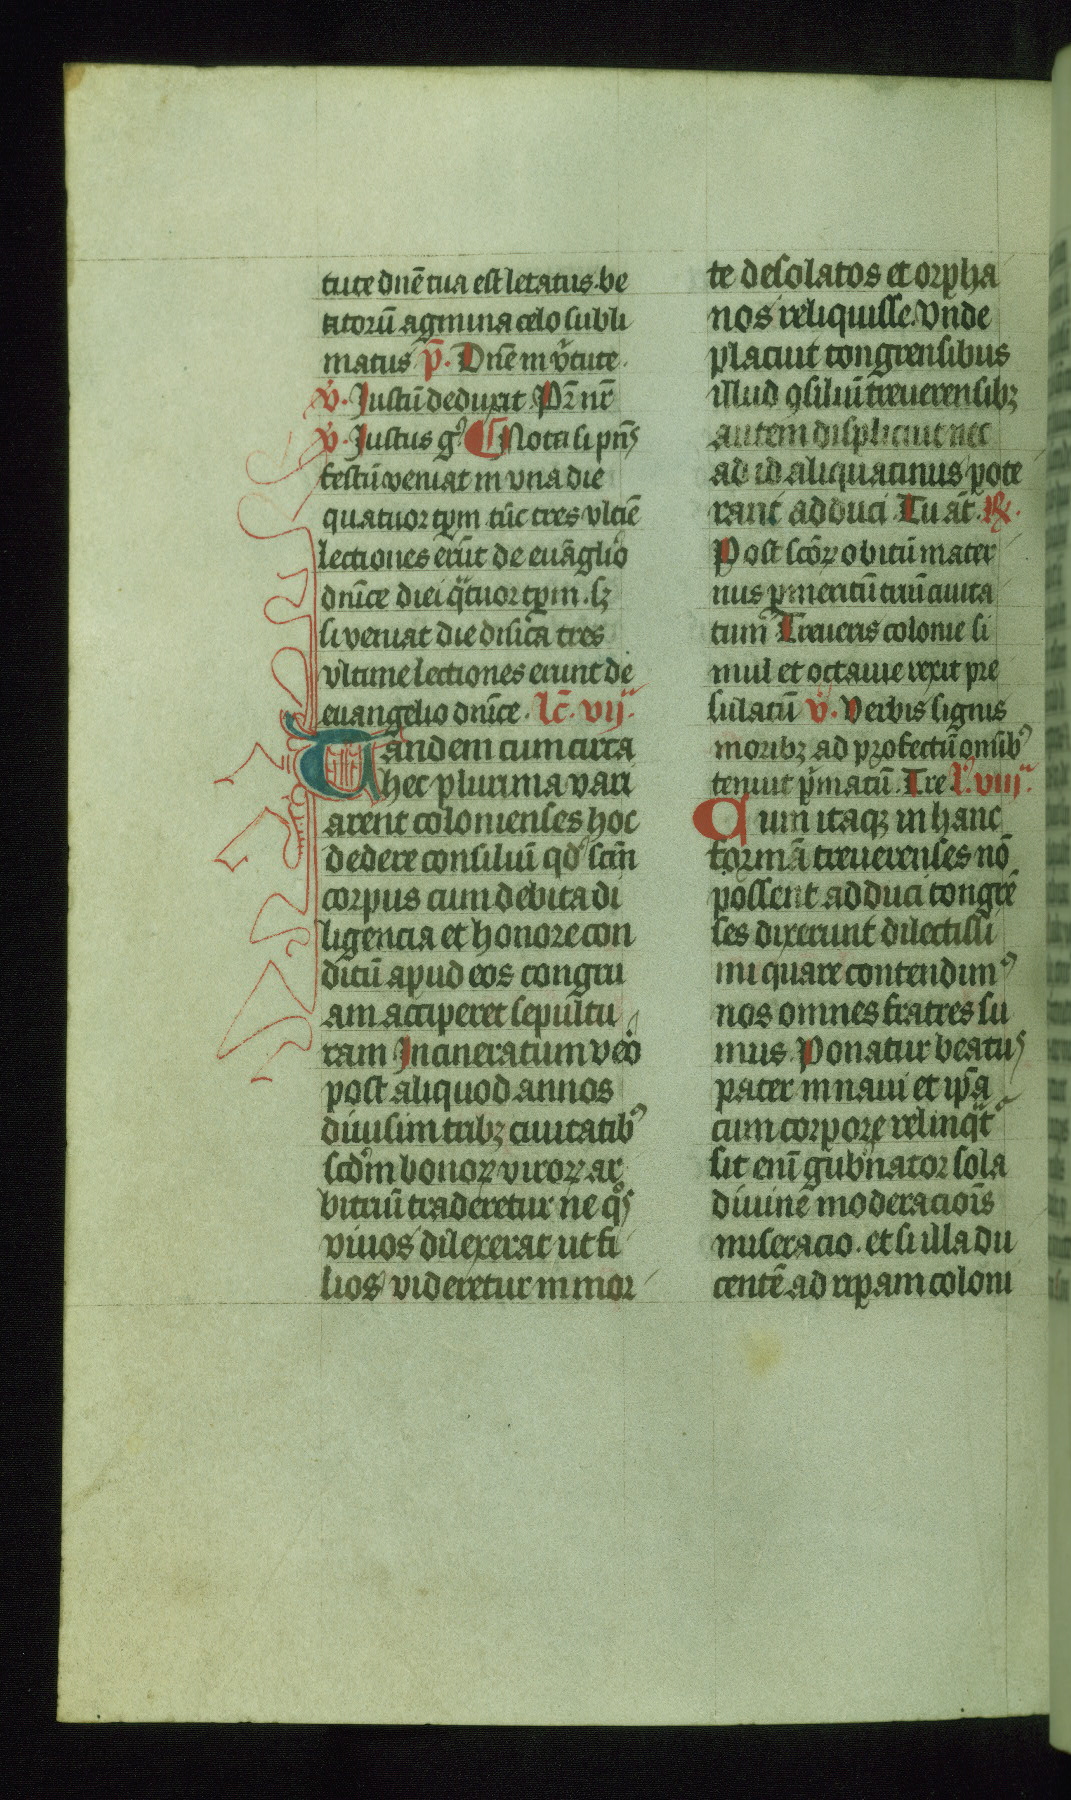 tute dnē tua est letatus be
atorū agmina celo subli
matus p̄. Dnē in v̾tute.
v̾. Justū deduxit Pr̄ nr̄
v̾. Justus g̾ Nota si pn̄s
festū veniat in vna die
quatuor tp̄m tūc tres vltīe
lectiones er̄ut de euāglio
dnīce diei q̾tuor tp̄m. sꝫ
si veniat die dnīca tres
vltime lectiones erunt de
euangelio dnīce. lc̄. vij.
Tandem cum circa
hec plurima vari
arent colonienses hoc
dedere consiliū qd̾ scm̄
corpus cum debita di
ligencia et honore con
ditū apud eos congru
am acciperet sepultu
ram Incineratum ve̾o
post aliquod annos
diuisim tribꝫ ciuitatib̾
scd̾m bonoꝝ viroꝝ ar
bitriū traderetur ne q̾s
viuos dilexerat ut fi
lios videretur in mor
te desolatos et orpha
nos reliquisse. Vnde
placuit tongrensibus
illud ꝯsiliū treuerensibꝫ
autem displicuit nec
ad id aliquatinus pote
rant adduci Tu āt. ℟.
Post scōꝝ obitū mater
nus p̱ meritū triū ciuita
tum Treueris colonie si
mul et octauie rexit pre
sulatū v̾. Verbis signis
moribꝫ ad profectū om̄ib̾
tenuit p̾matū. Tre l̾. viij.
Cum itaqꝫ in hanc
formā treuerenses nō
possent adduci tongrē
ses dixerunt dilectissi
mi quare contendim̾
nos omnes fratres su
mus Ponatur beatus
pater in naui et ip̄a
cum corpore relinq̾t̾
sit enī gub̾nator sola
diuine moderaciōis
miseracio. et si illa du
centē ad ripam coloni